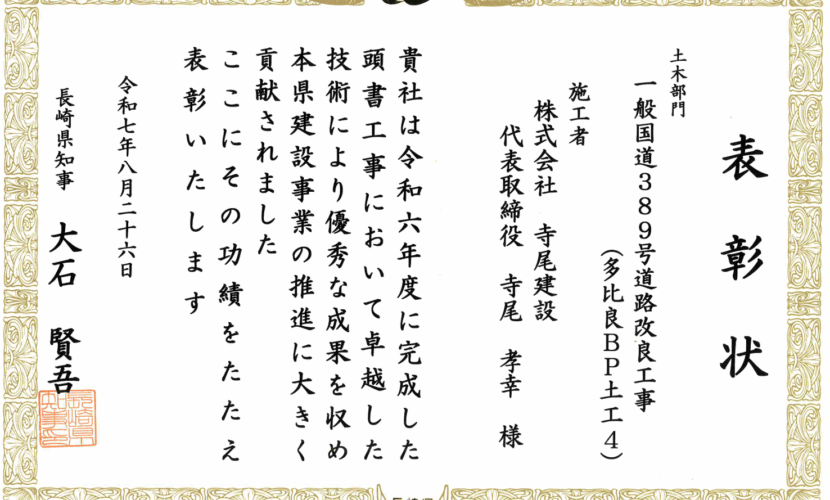 表彰状
土木部門
一般国道389号道路改良工事
(多比良BP土工4)
施工者
株式会社 寺尾建設
代表取締役 寺尾 孝幸 様
貴社は令和六年度に完成した
頭書工事において卓越した
技術により優秀な成果を収め
本県建設事業の推進に大きく
貢献されました
ここにその功績をたたえ
表彰いたします
令和七年八月二十六日
長崎県知事 大石 賢吾